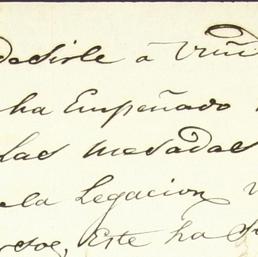 decirle á Vm̃d
ha Empeñado
las mesadas
la Legacion
Este ha